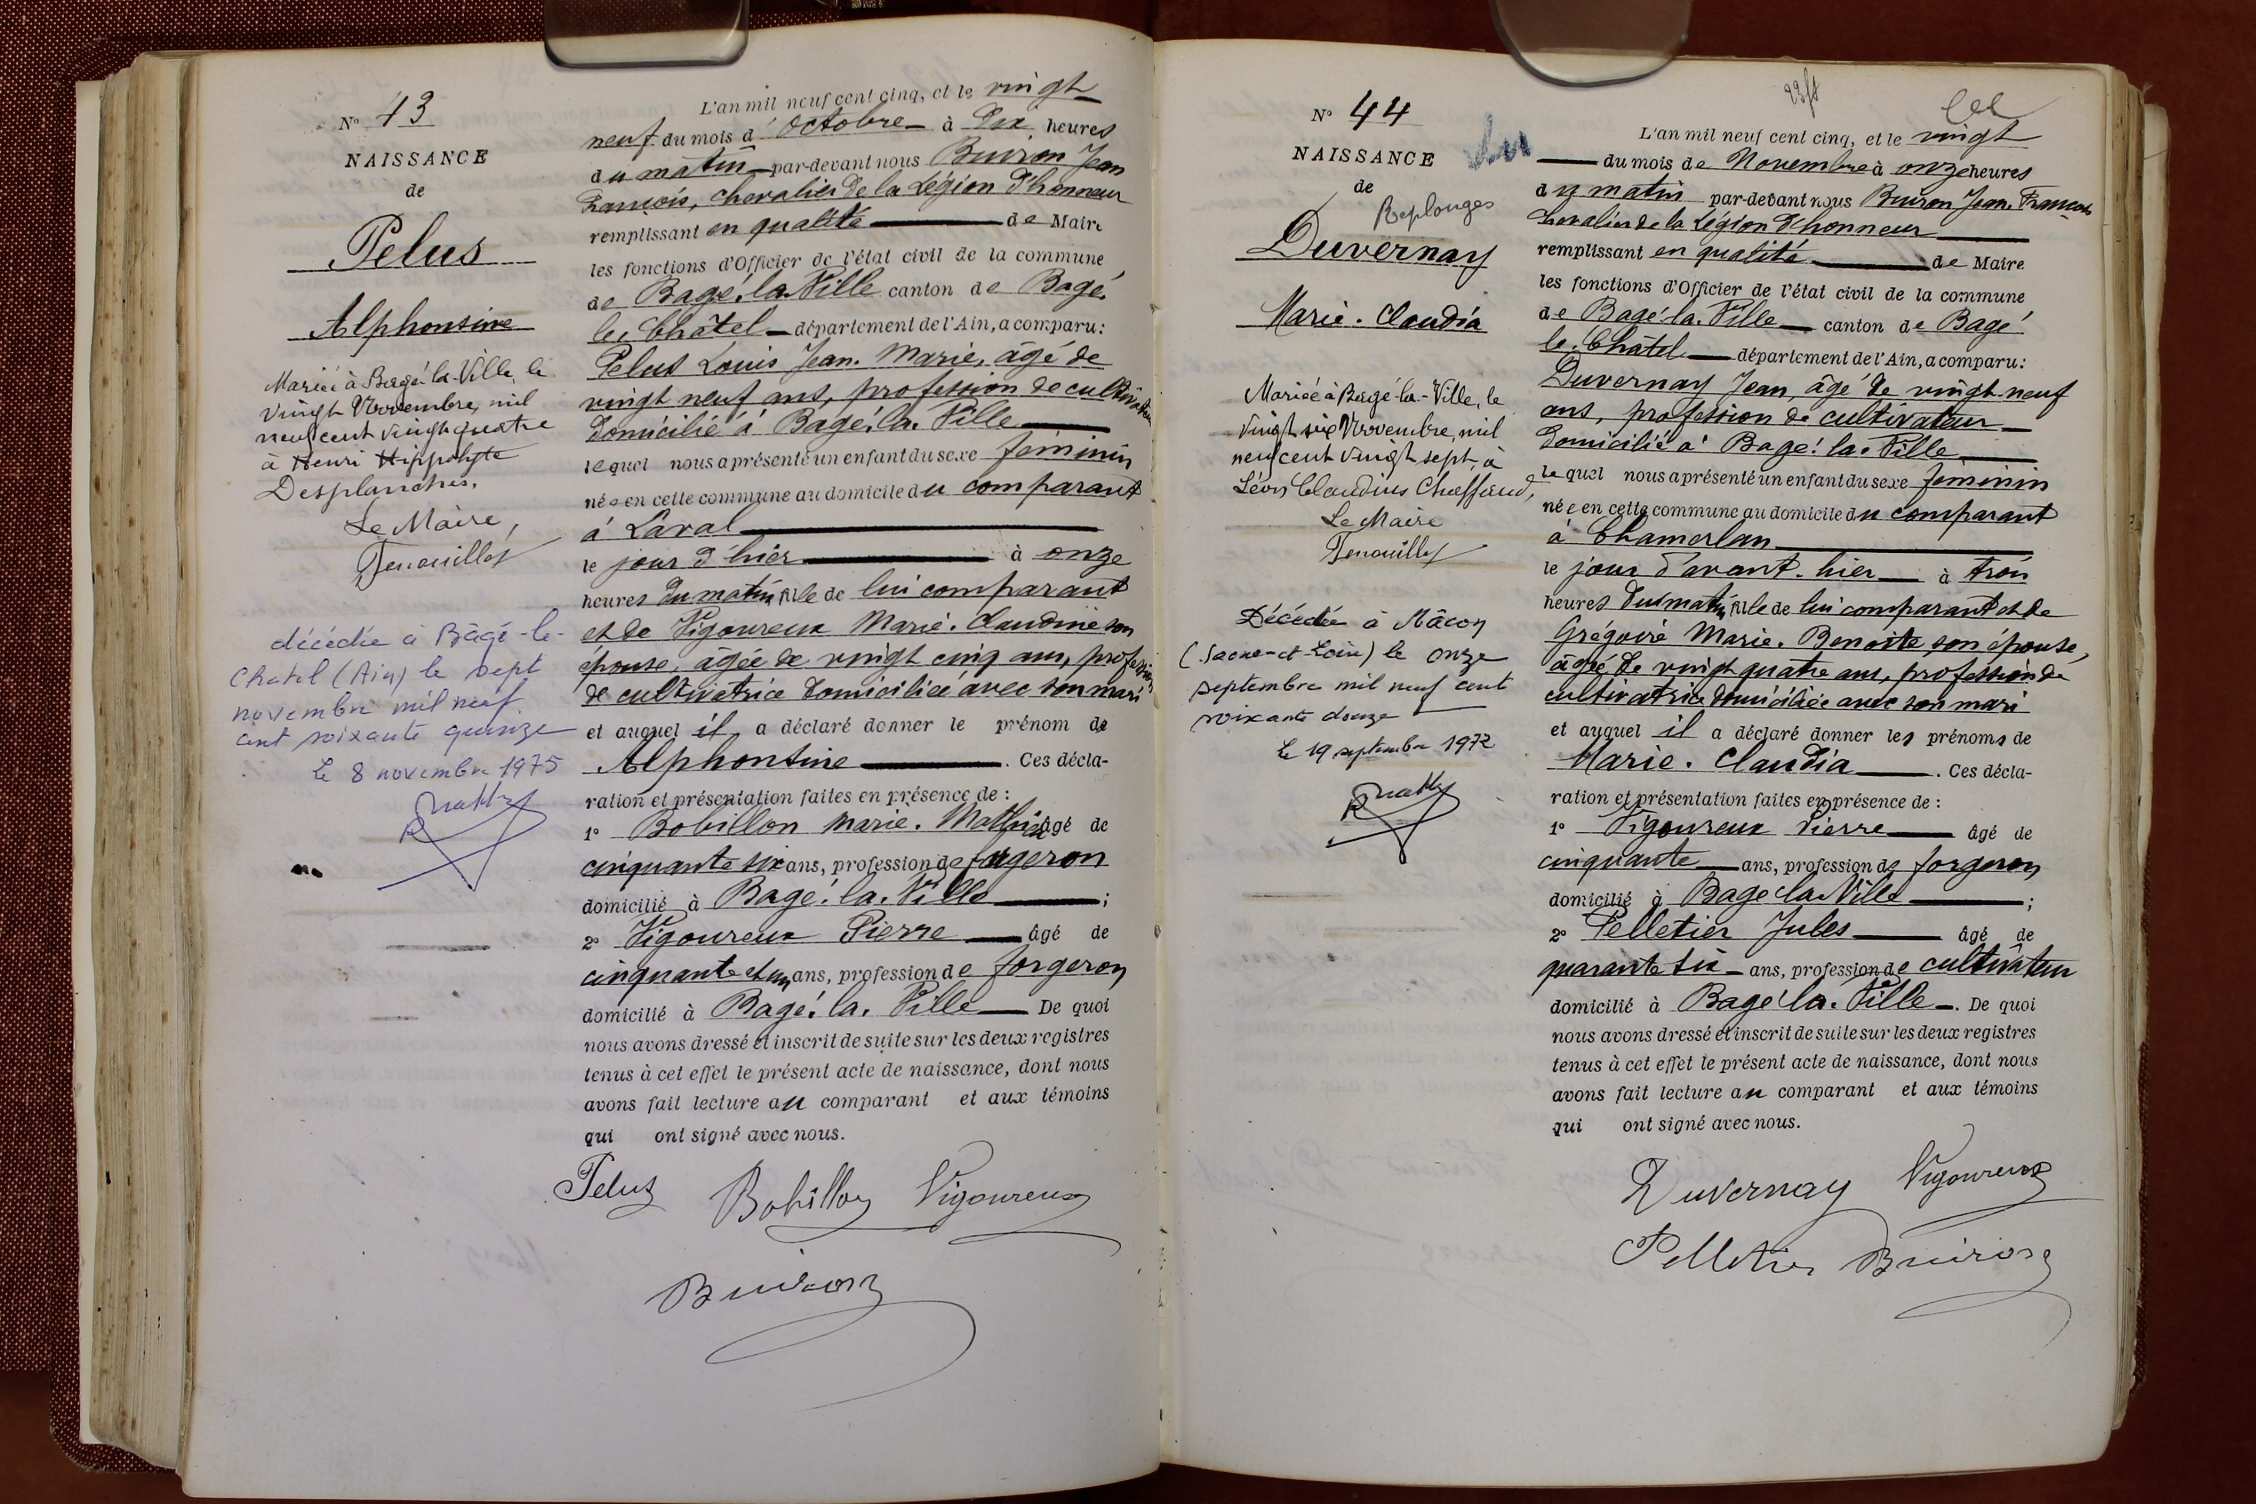 N° 43
NAISSANCE
de
Pelus
Alphonsine
Mariée à Bagé-la-Ville, le
vingt Novembre, mil
neuf cent vingt quatre
à Henri Hippolyte
Desplanches.
Le Maire,
Fenouillet
décédée à Bâgé-le-
Chatel (Ain) le sept
novembre mil neuf
cent soixante quinze
le 8 novembre 1975
L'an mil neuf cent cinq, et le vingt
neuf du mois d'Octobre à Dix heures
du matin par-devant nous Buiron Jean
François, chevalier de la Légion d'honneur
remplissant en qualité de Maire
les fonctions d'Officier de l'état civil de la commune
de Bagé-la-Ville canton de Bagé
le-Châtel département de l'Ain, a comparu :
Pelus Louis Jean-Marie, âgé de
vingt neuf ans, profession de cultivateur
domicilié à Bagé-la-Ville
lequel nous a présenté un enfant du sexe féminin
née en cette commune au domicile du comparant
à Laval
le jour d'hier à onze
heures du matin fille de lui comparant
et de Vigoureux Marie-Claudine son
épouse, âgée de vingt cinq ans, profession
de cultivatrice domiciliée avec son mari
et auquel il a déclaré donner le prénom de
Alphonsine . Ces décla-
ration et présentation faites en présence de :
1° Bobillon Marie-Mathieu âgé de
cinquante six ans, profession de forgeron
domicilié à Bagé-la-Ville ;
2° Vigoureux Pierre âgé de
cinquante et un ans, profession de forgeron
domicilié à Bagé-la-Ville De quoi
nous avons dressé et inscrit de suite sur les deux registres
tenus à cet effet le présent acte de naissance, dont nous
avons fait lecture au comparant et aux témoins
qui ont signé avec nous.
Pelus Bobillon Vigoureux
Buiron
N° 44
NAISSANCE
de
Replonges
Duvernay
Marie-Claudia
Mariée à Bagé-la-Ville, le
vingt six Novembre, mil
neuf cent vingt sept, à
Léon Claudius Chaffaud,
Le Maire
Fenouillet
Décédée à Mâcon
(Saone-et-Loire) le onze
septembre mil neuf cent
soixante douze
le 19 septembre 1972
L'an mil neuf cent cinq, et le vingt
du mois de Novembre à onze heures
du matin par-devant nous Buiron Jean-François
chevalier de la Légion d'honneur
remplissant en qualité de Maire
les fonctions d'Officier de l'état civil de la commune
de Bagé-la-Ville canton de Bagé
le-Châtel département de l'Ain, a comparu :
Duvernay Jean, âgé de vingt-neuf
ans, profession de cultivateur
domicilié à Bagé-la-Ville
lequel nous a présenté un enfant du sexe féminin
née en cette commune au domicile du comparant
à Chamerlan
le jour d'avant-hier à trois
heures du matin fille de lui comparant et de
Grégoire Marie-Benoite son épouse,
âgée de vingt quatre ans, profession de
cultivatrice domiciliée avec son mari
et auquel il a déclaré donner les prénoms de
Marie-Claudia . Ces décla-
ration et présentation faites en présence de :
1° Vigoureux Pierre âgé de
cinquante ans, profession de forgeron
domicilié à Bagé la Ville ;
2° Pelletier Jules âgé de
quarante six ans, profession de cultivateur
domicilié à Bagé-la-Ville . De quoi
nous avons dressé et inscrit de suite sur les deux registres
tenus à cet effet le présent acte de naissance, dont nous
avons fait lecture au comparant et aux témoins
qui ont signé avec nous.
Duvernay Vigoureux
Pelletier Buiron